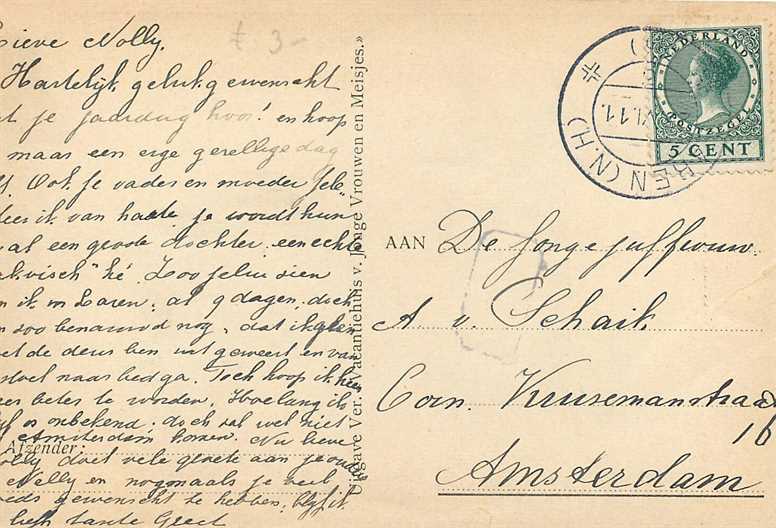 Lieve Nolly.
Hartelijk gelukgewenscht
je jaardag hoor! en hoop
maar een erge gezellige dag
Ook je vader en moeder fele-
ik van harte, je wordt hun
al een groote dochter, een echte
" hé. Zoo jelui zien
ik in Laren, al 9 dagen, doch
zoo benauwd nog, dat ik
de deur ben uit geweest en van
stoel naar bed ga. Toch hoop ik hier
beter te worden. Hoelang ik
is onbekend; doch zal wel niet
Amsterdam komen. Nu lieve
Nolly doet vele groete aan je ouders
Nelly en nogmaals je veel
gewenscht te hebben, blijf ik
tante Greet
Afzender:
Uitgave Ver. „Vacantiehuis v. Jonge Vrouwen en Meisjes.»
£ 3-
NEDERLAND
POSTZEGEL
5 CENT
VI.11
REN (N.H)
AAN De Jonge juffrouw
A v. Schaik
Corn. Krusemanstraat
16
Amsterdam